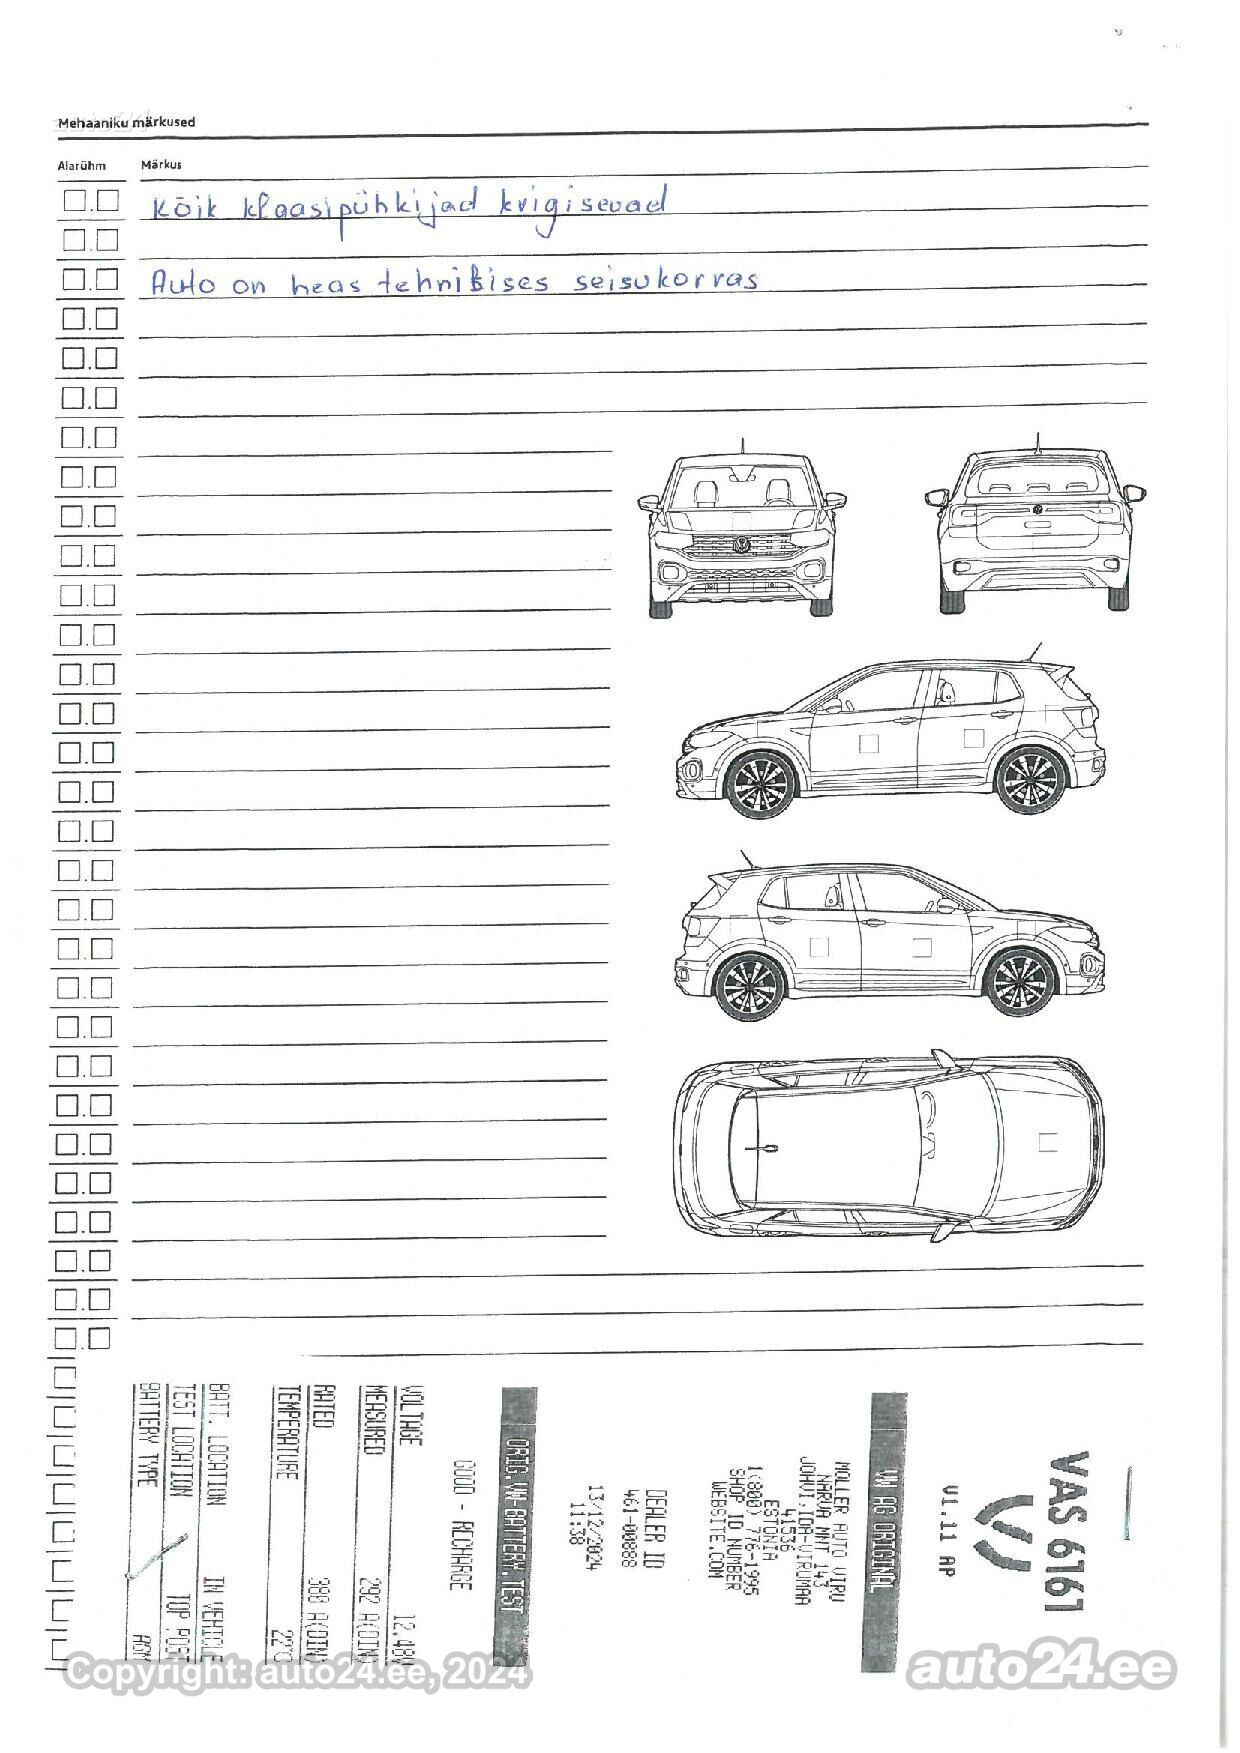 Mehaaniku märkused
Alarühm Märkus
Kõik klaasipühkijad krigisevad
Auto on heas tehnilises seisukorras
VAS 6161
V1.11 AP
VW AG ORIGINAL
MOLLER AUTO VIRU
NARVA MNT 143
JOHVI, IDA-VIRUMAA
41536
ESTONIA
1(800) 776-1995
SHOP ID NUMBER
WEBSITE.COM
DEALER ID
461-00888
13/12/2024
11:38
ORIG.VW-BATTERY.TEST
GOOD - RECHARGE
VOLTAGE 12.48V
MEASURED 292 A(DIN)
RATED 380 A(DIN)
TEMPERATURE 22°C
BATT. LOCATION IN VEHICLE
TEST LOCATION TOP POST
BATTERY TYPE AGM
Copyright: auto24.ee, 2024
auto24.ee